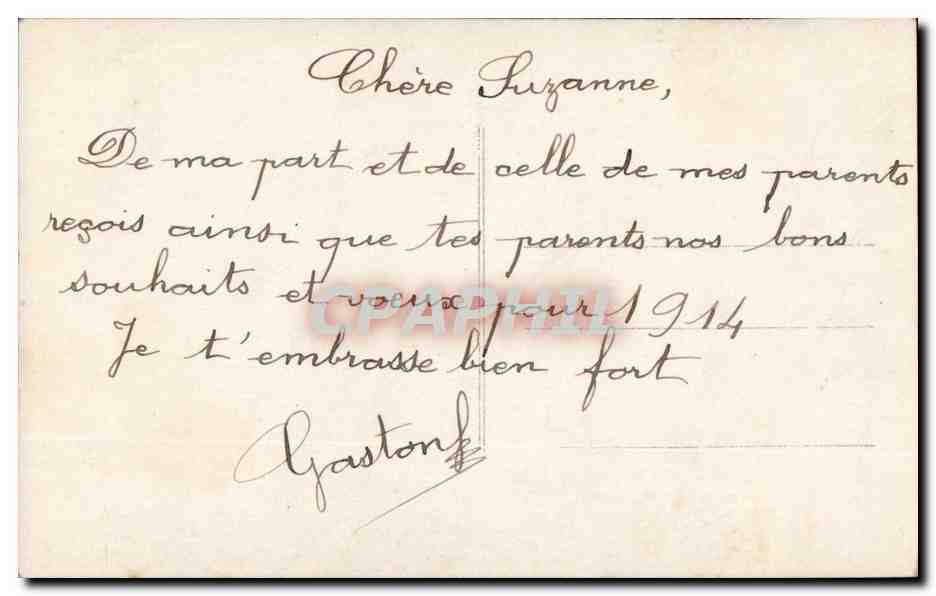 Chère Suzanne,
De ma part et de celle de mes parents
reçois ainsi que tes parents nos bons
souhaits et voeux pour 1914
Je t'embrasse bien fort
Gaston
CPAPHIL